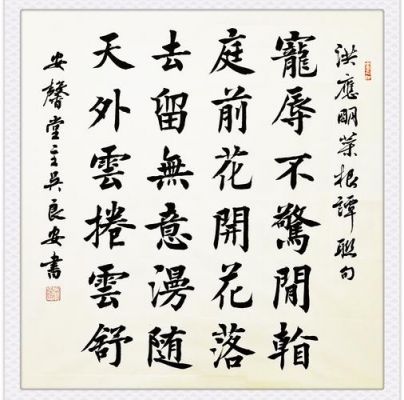 洪應明菜根譚聯句
寵辱不驚閒看
庭前花開花落
去留無意漫随
天外雲捲雲舒
安馨堂主吳良安書